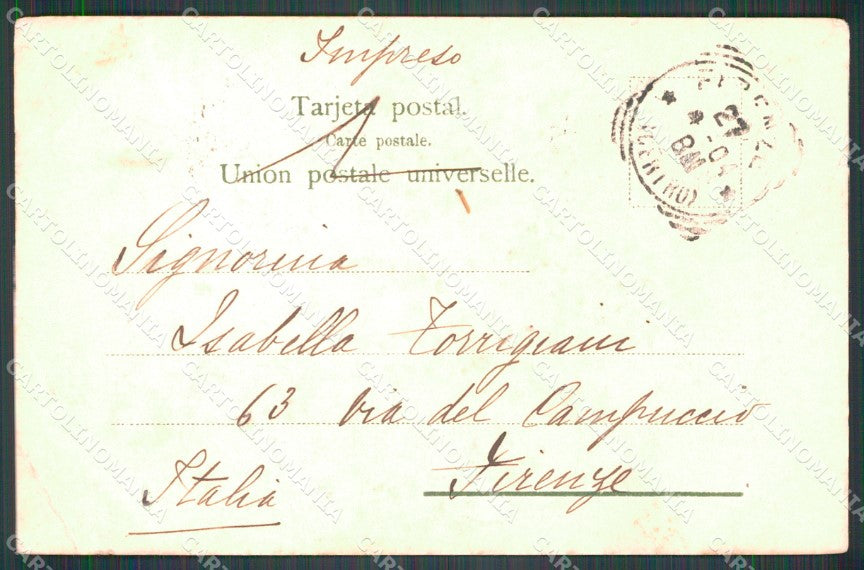 Impreso
Tarjeta postal.
Carte postale.
Union postale universelle.
FIRENZE
27
8M
(CENTRO)
Signorina
Isabella Torrigiani
63 Via del Campuccio
Firenze
Italia
CARTOLINOMANIA